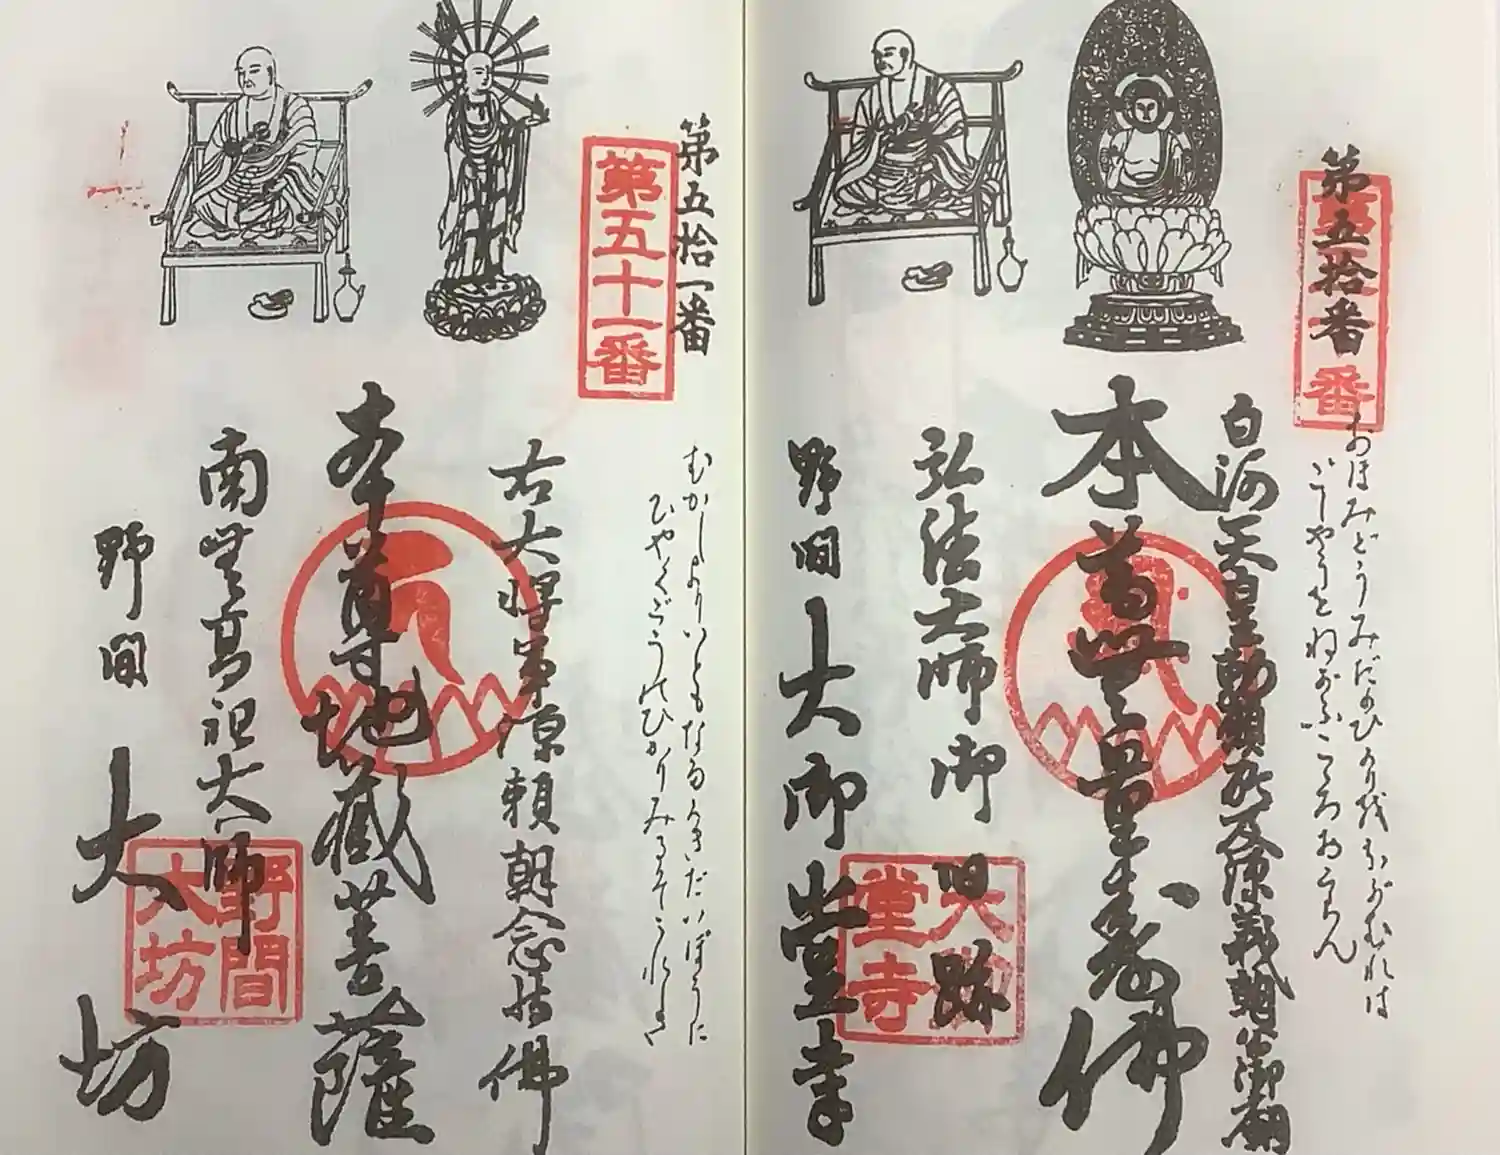 第五拾番
第五十番
おほみどうみだのひかり
ごしやうをねがふこころおこらん
白河天皇勅願所 源義朝公御廟
本尊無量寿佛
弘法大師御旧跡
野間大御堂寺
大御堂寺
第五拾一番
第五十一番
むかしよりいともなるときだいぼうに
ひやくごうのひかりみるぞうれしき
右大将源頼朝念持佛
本尊地蔵菩薩
南無高祖大師
野間大坊
野間大坊